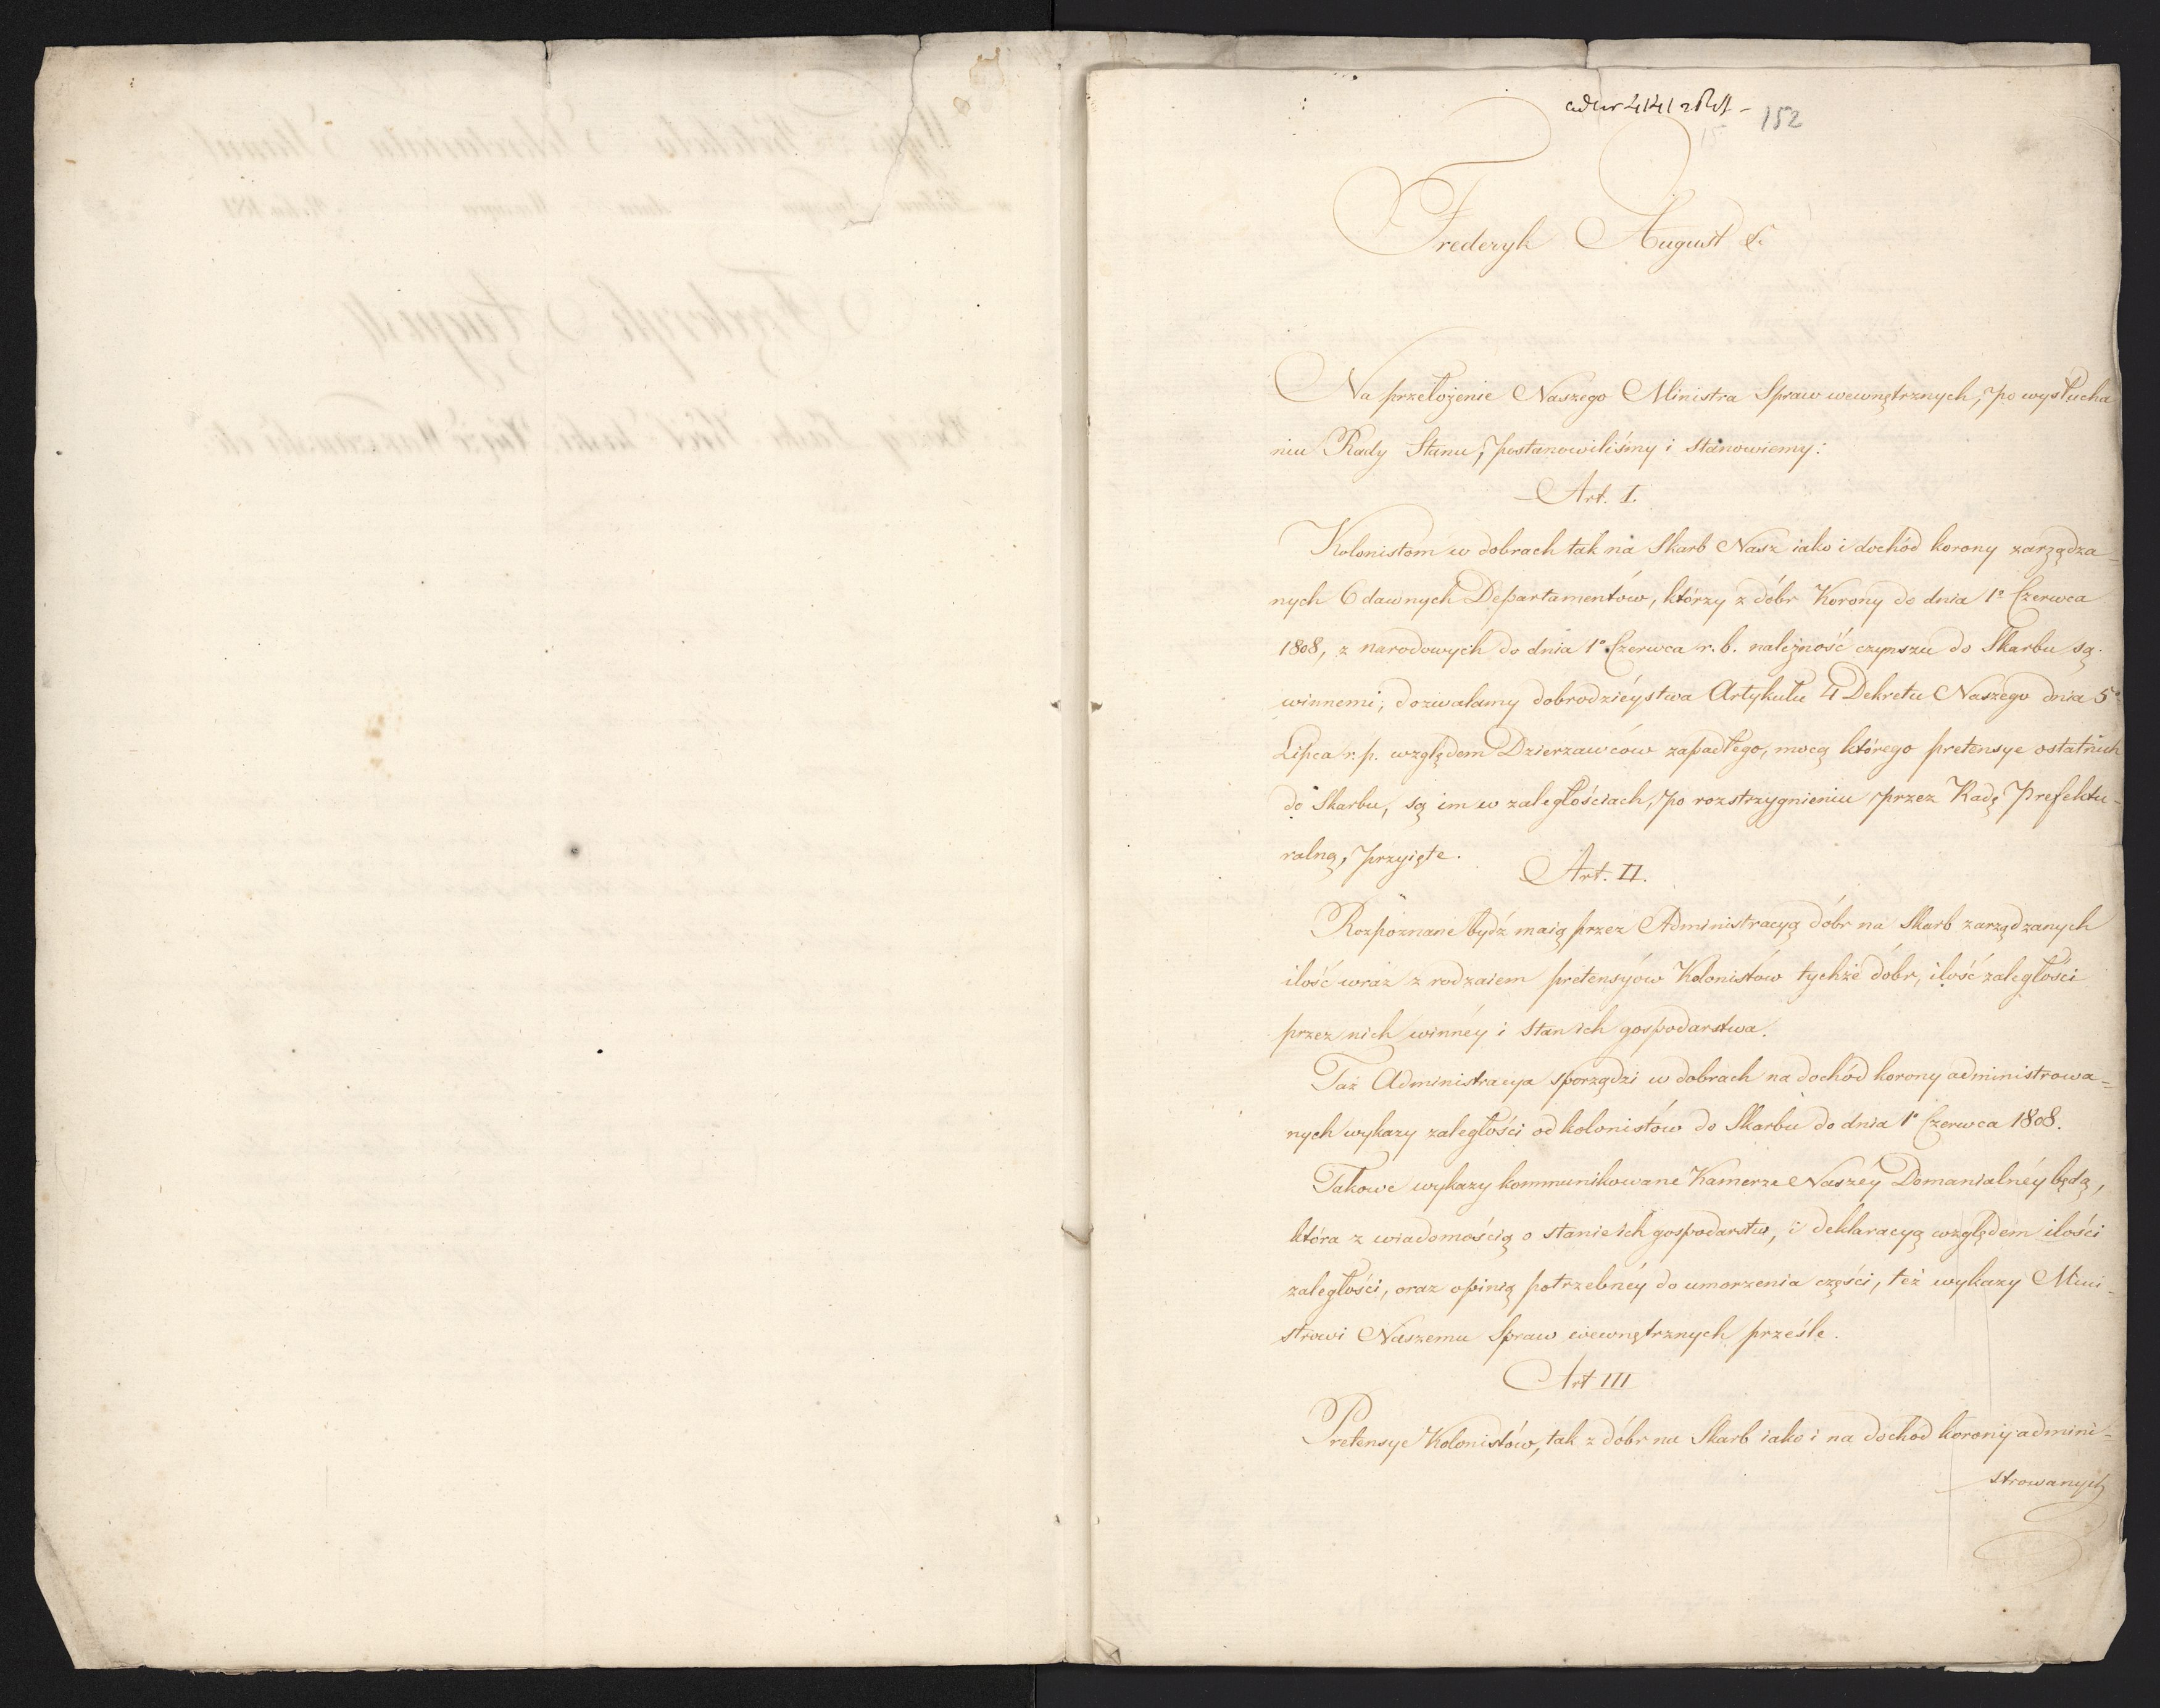 152
Frederyk August &
Na przełożenie Naszego Ministra Spraw wewnętrznych, po wysłucha
niu Rady Stanu, postanowiliśmy i stanowiemy:
Art. I.
Kolonistom w dobrach tak na Skarb Nasz iako i dochód korony zarządza=
nych 6 dawnych Departamentów, którzy z dóbr Korony do dnia 1° Czerwca
1808, z narodowych do dnia 1° Czerwca r. b. należność czynszu do Skarbu są
winnemi, dozwalamy dobrodzieystwa Artykułu 4 Dekretu Naszego dnia 5°
Lipca r. p. względem Dzierzawców zapadłego, mocą którego pretensye ostatnich
do Skarbu, są im w zaległościach, po rozstrzygnieniu przez Radę Prefektu-
ralną, przyięte.
Art. II.
Rozpoznane bydź maią przez Administracyą dóbr na Skarb zarządzanych
ilość wraz z rodzaiem pretensyów Kolonistów tychże dóbr, ilość zaległości
przez nich winnéy i stan ich gospodarstwa.
Taż Administracya sporządzi w dobrach na dochód korony administrowa=
nych wykazy zaległości od kolonistów do Skarbu do dnia 1° Czerwca 1808.
Takowe wykazy kommunikowane Kamerze Naszéy Domanialnéy będą,
która z wiadomością o stanie ich gospodarstw, i deklaracyą względem ilości
zaległości, oraz opinią potrzebnéy do umorzenia części, też wykazy Mini-
strowi Naszemu Spraw wewnętrznych prześle.
Art III
Pretensye Kolonistów, tak z dóbr na Skarb iako i na dochód korony admini-
strowanych